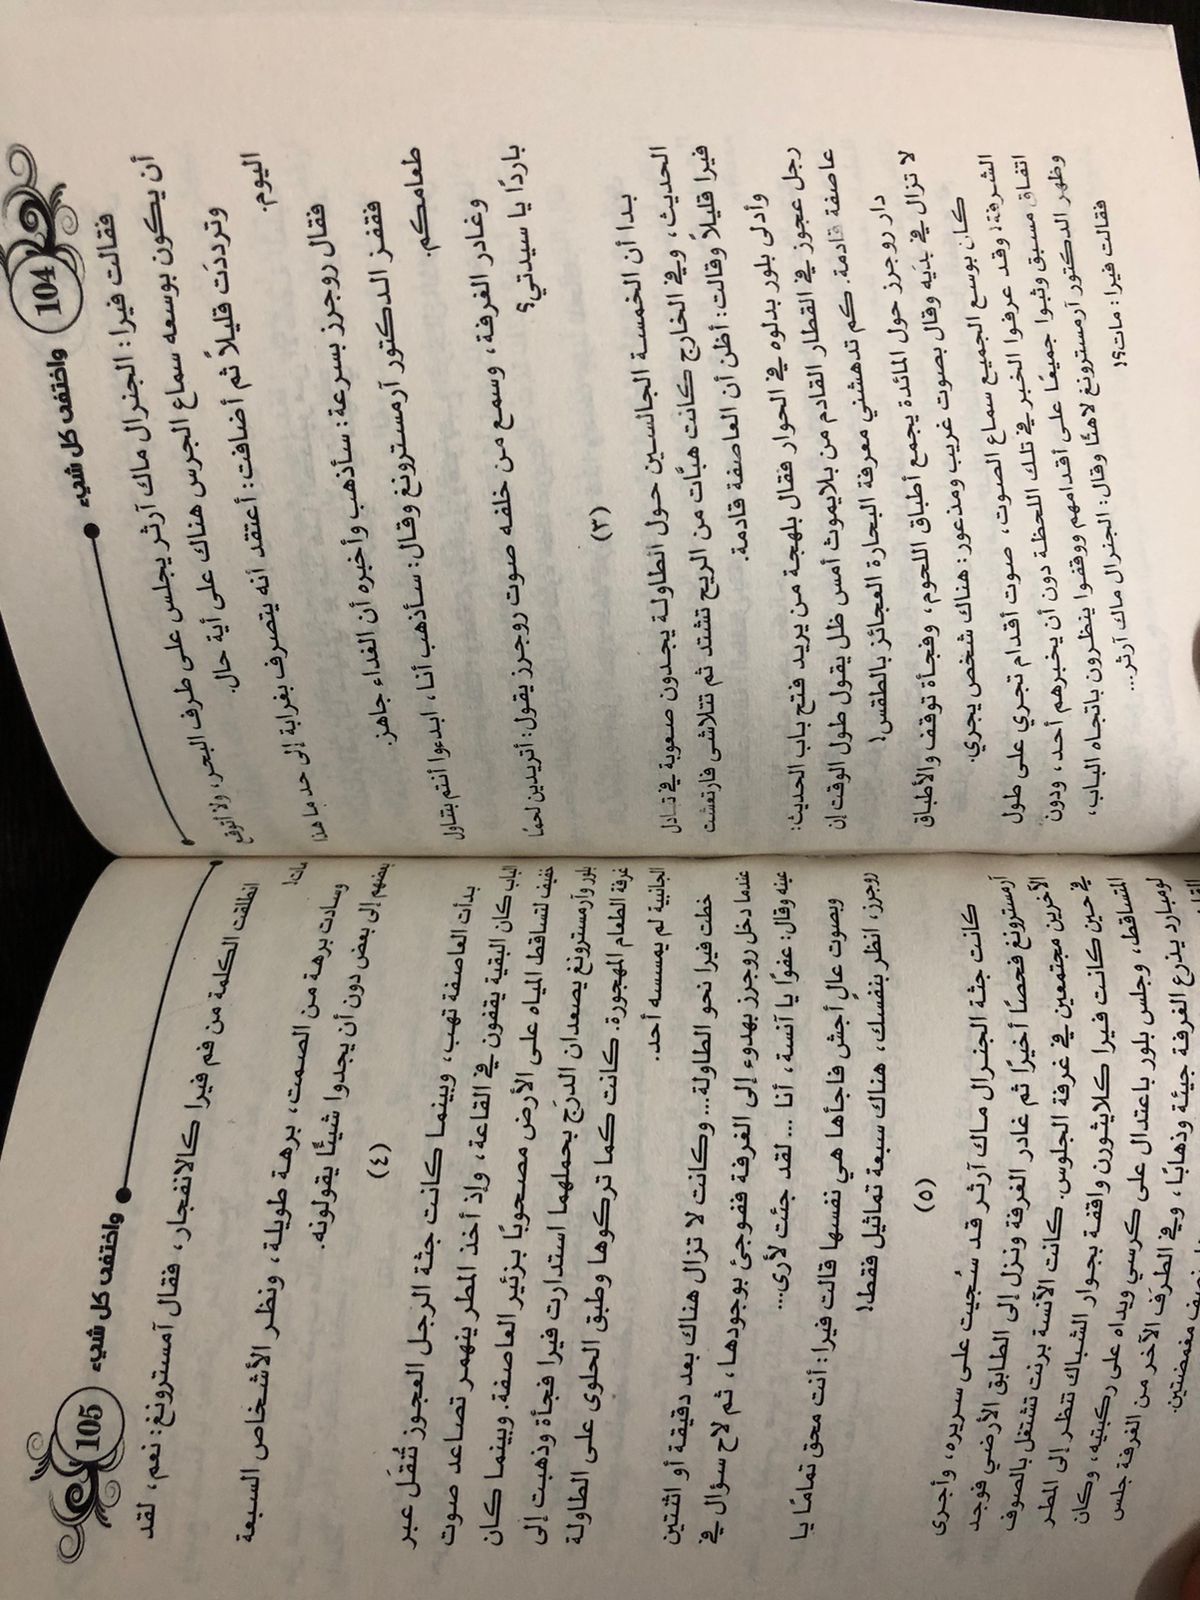 104
واختفى كل شيء
فقالت فيرا: الجنرال ماك آرثر يجلس على طرف البحر، ولا أتوقع
أن يكون بوسعه سماع الجرس هناك على أية حال.
وترددَت قليلاً ثم أضافت: أعتقد أنه يتصرف بغرابة إلى حد ما هذا
اليوم.
فقال روجرز بسرعة: سأذهب وأخبره أن الغداء جاهز.
فقفز الدكتور آرمسترونغ وقال: سأذهب أنا، ابدءوا أنتم بتناول
طعامكم.
وغادر الغرفة، وسمع من خلفه صوت روجرز يقول: أتريدين لحمًا
باردًا يا سيدتي؟
(٣)
بدا أن الخمسة الجالسين حول الطاولة يجدون صعوبة في تبادل
الحديث، وفي الخارج كانت هبَّات من الريح تشتد ثم تتلاشى فارتعشت
فيرا قليلاً وقالت: أظن أن العاصفة قادمة.
وأدلى بلور بدلوه في الحوار فقال بلهجة من يريد فتح باب الحديث:
رجل عجوز في القطار القادم من بلايموث أمس ظل يقول طول الوقت إن
عاصفة قادمة. كم تدهشني معرفة البحارة العجائز بالطقس!
دار روجرز حول المائدة يجمع أطباق اللحوم، وفجأة توقف والأطباق
لا تزال في يديَه وقال بصوت غريب ومذعور: هناك شخص يجري.
كان بوسع الجميع سماع الصوت، صوت أقدام تجري على طول
الشرفة! وقد عرفوا الخبر في تلك اللحظة دون أن يخبرهم أحد، ودون
اتفاق مسبق وثبوا جميعًا على أقدامهم ووقفوا ينظرون باتجاه الباب،
وظهر الدكتور آرمسترونغ لاهثًا وقال: الجنرال ماك آرثر...
فقالت فيرا: مات؟!
105
واختفى كل شيء
انطلقت الكلمة من فم فيرا كالانفجار، فقال آمسترونغ: نعم، لقد
مات!
وسادت برهة من الصمت، برهة طويلة، ونظر الأشخاص السبعة
بعضهم إلى بعض دون أن يجدوا شيئًا يقولونه.
(٤)
بدأت العاصفة تهب، وبينما كانت جثة الرجل العجوز تُنقَل عبر
الباب كان البقية يقفون في القاعة، وإذ أخذ المطر ينهمر تصاعد صوت
خفيف لتساقط المياه على الأرض مصحوبًا بزئير العاصفة. وبينما كان
بلور وآرمسترونغ يصعدان الدرَج بحملهما استدارت فيرا فجأة وذهبت إلى
غرفة الطعام المهجورة. كانت كما تركوها وطبق الحلوى على الطاولة
الجانبية لم يمسسه أحد.
خطت فيرا نحو الطاولة... وكانت لا تزال هناك بعد دقيقة أو اثنتين
عندما دخل روجرز بهدوء إلى الغرفة ففوجئ بوجودها، ثم لاح سؤال في
عينه وقال: عفوًا يا آنسة، أنا ... لقد جئت لأرى...
وبصوت عالٍ أجش فاجأها هي نفسها قالت فيرا: أنت محق تمامًا يا
روجرز، انظر بنفسك، هناك سبعة تماثيل فقط!
(٥)
كانت جثة الجنرال ماك آرثر قد سُجيت على سريره، وأجرى
آرمسترونغ فحصًا أخيرًا ثم غادر الغرفة ونزل إلى الطابق الأرضي فوجد
الآخرين مجتمعين في غرفة الجلوس. كانت الآنسة برنت تشتغل بالصوف
في حين كانت فيرا كلايثورن واقفة بجوار الشباك تنظر إلى المطر
المتساقط، وجلس بلور باعتدال على كرسي ويداه على ركبتيه، وكان
لومبارد يذرع الغرفة جيئة وذهابًا، وفي الطرَف الآخر من الغرفة جلس
مغمضتين.